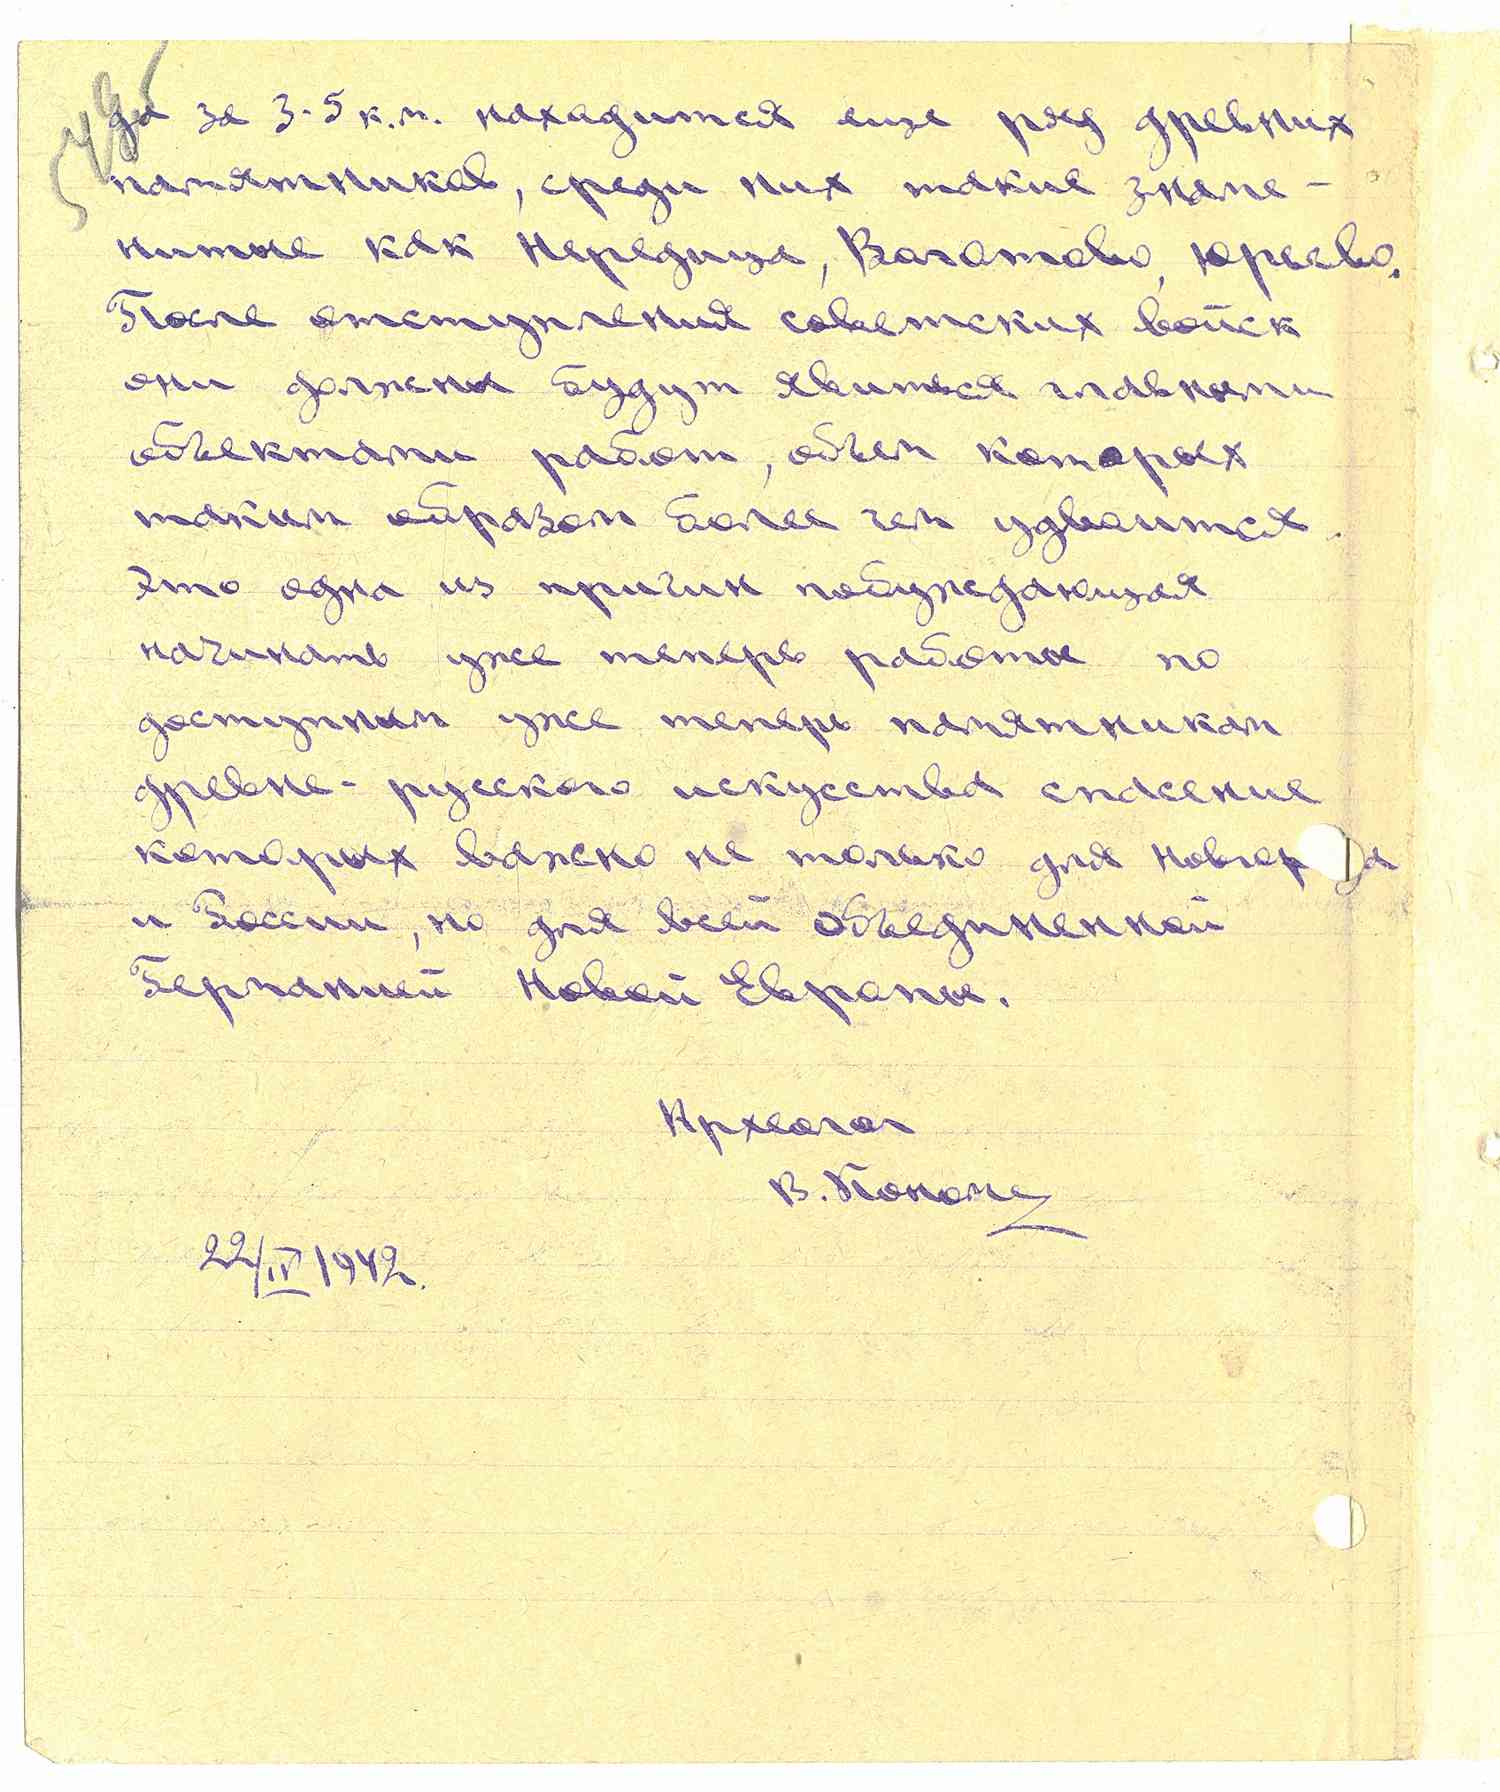 да за 3-5 к.м. находится еще ряд древних
памятников, среди них такие знаме-
нитые как Нередица, Волотово, Юрьево.
После отступления советских войск
они должны будут явиться главными
объектами работ, объем которых
таким образом более чем удвоится.
Это одна из причин побуждающая
начинать уже теперь работы по
доступным уже теперь памятникам
древне-русского искусства спасение
которых важно не только для Новгор да
и России, но для всей объединенной
Германией Новой Европы.
Археолог
В. Понома
22/IV 1942.